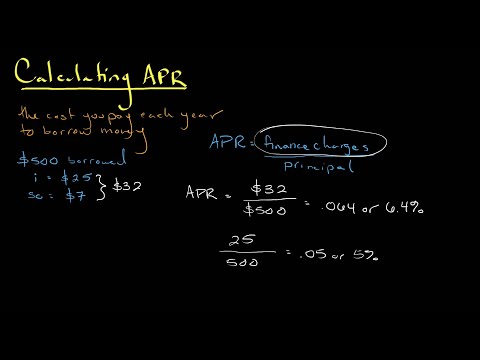 Calculating APR
the cost you pay each year
to borrow money
$500 borrowed
i = $25
sc = $7
} $32
APR = finance charges
principal
APR = $32
$500
= .064 or 6.4%
25
500
= .05 or 5%